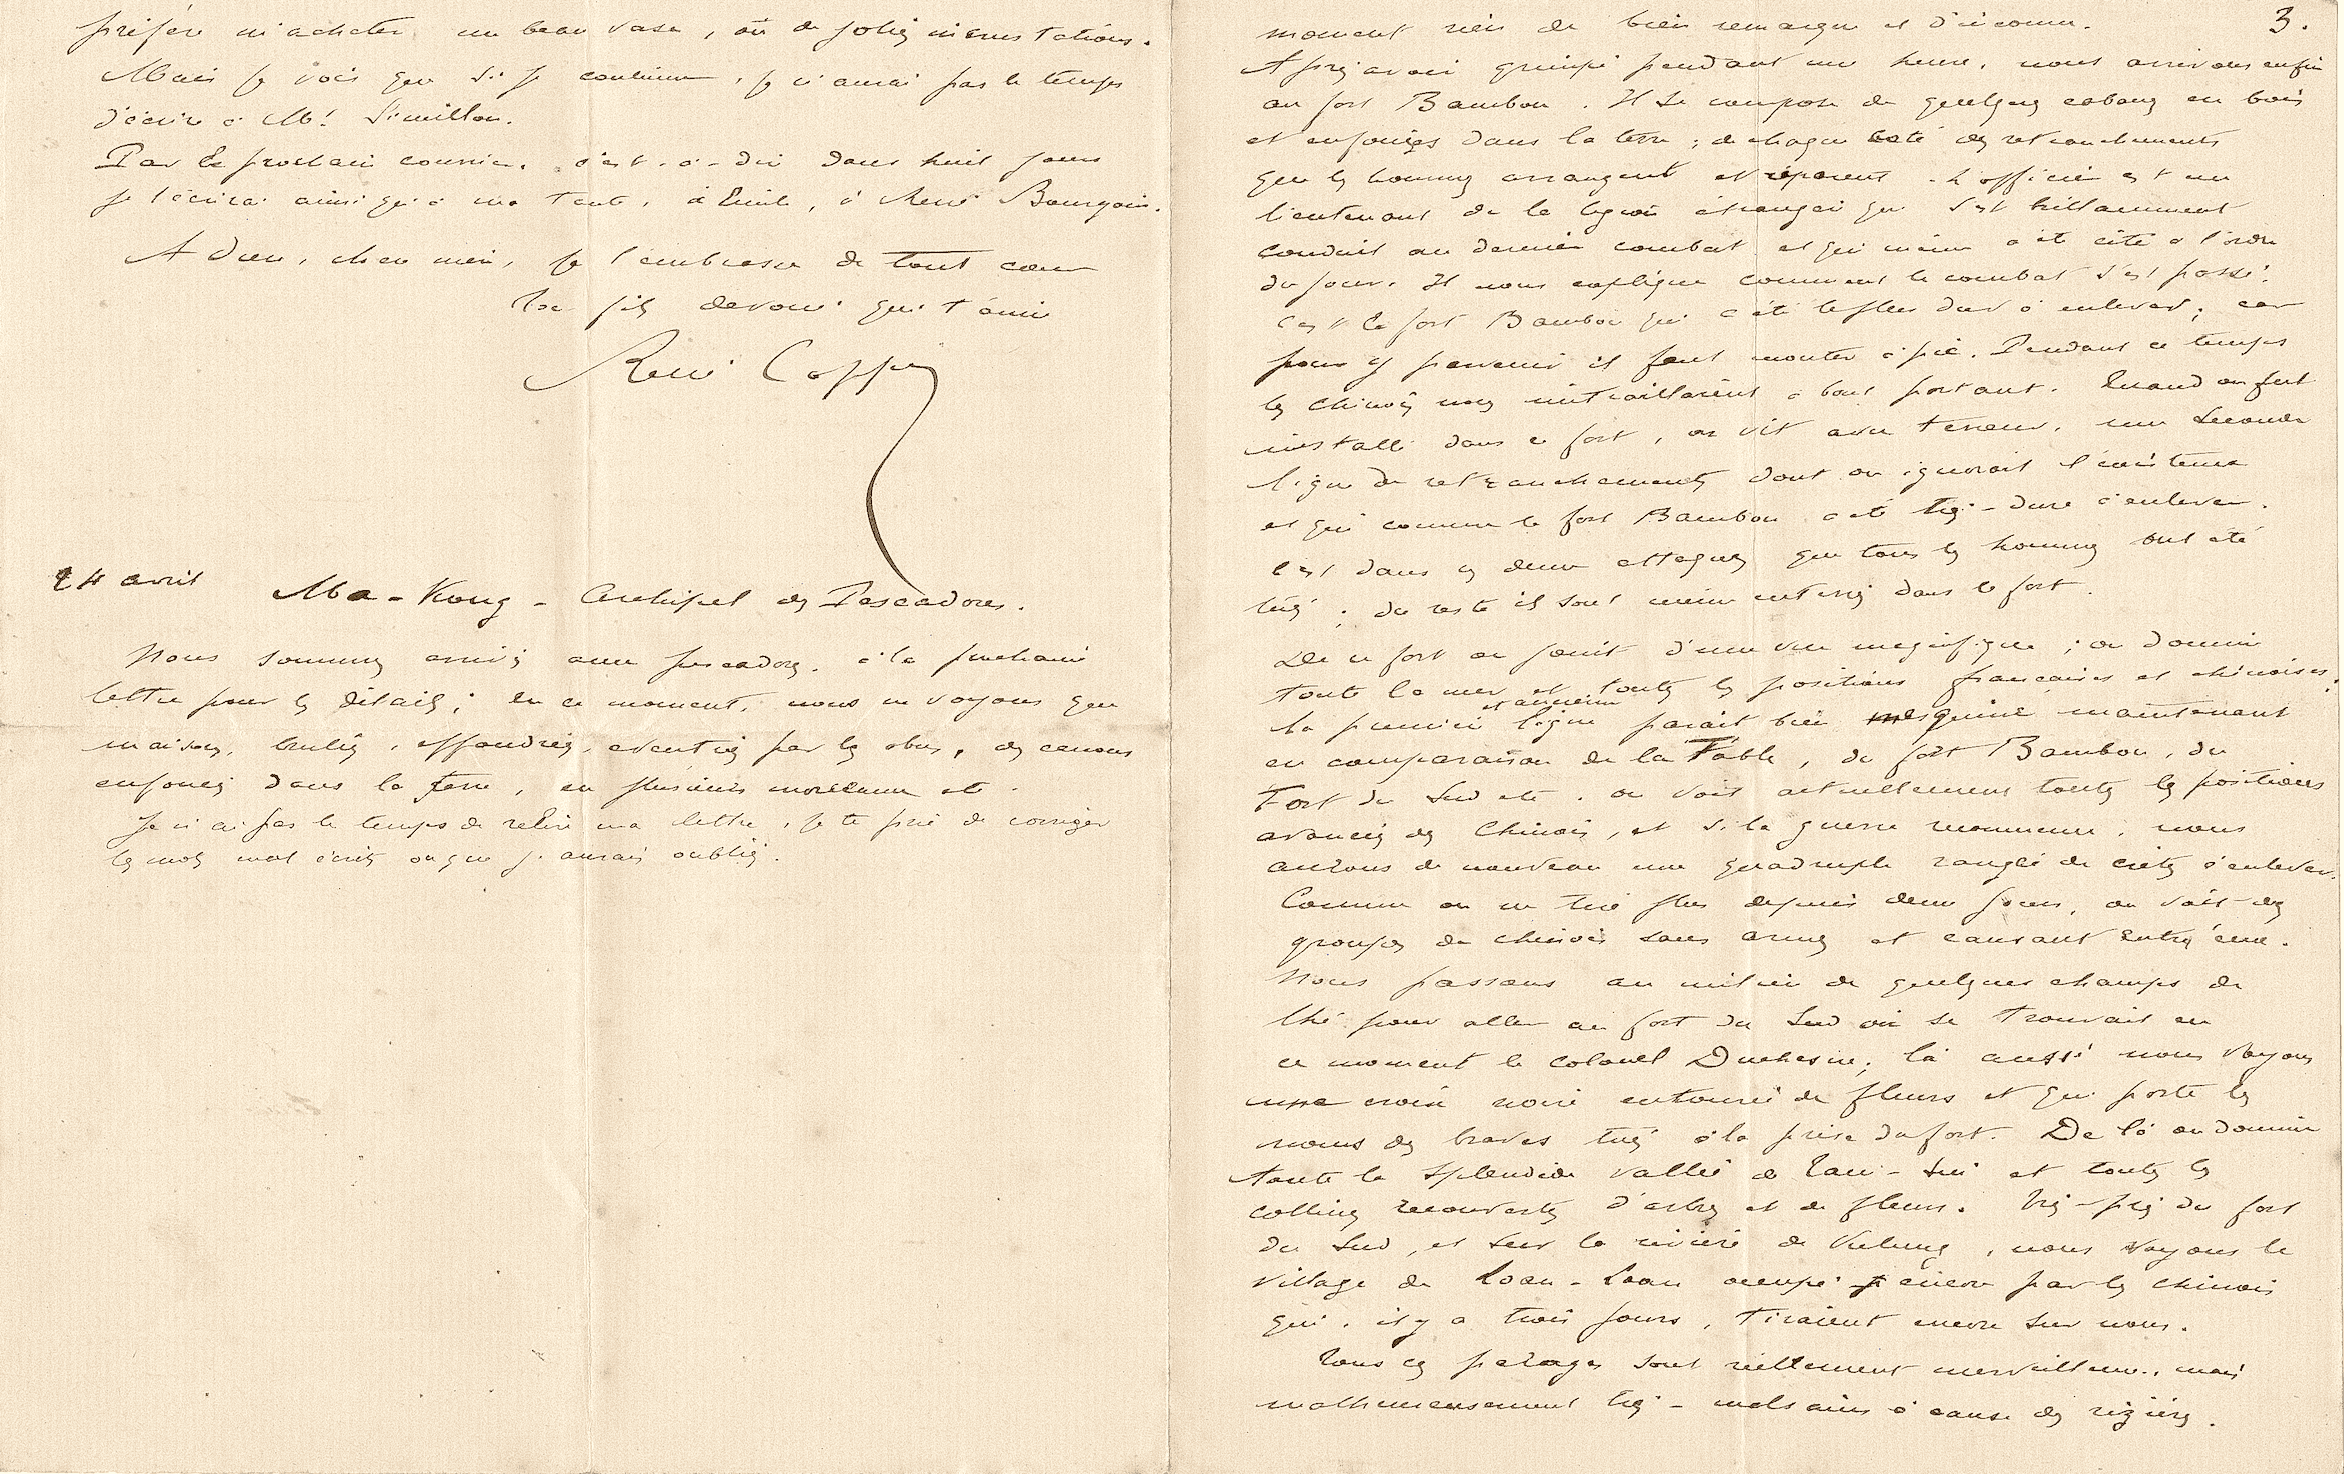 préfère m'acheter un beau vase, ou de jolies incrustations.
Mais je vois que si je continue, je n'aurai pas le temps
d'écrire à Mr Simillon.
Par le prochain courrier, c'est-à-dire dans huit jours
je t'écrirai ainsi qu'à ma tante, à Emile, à René Bourgoin.
Adieu, chère mère, je t'embrasse de tout cœur
Ton fils dévoué qui t'aime
René Coppin
24 avril Ma-Kong - Archipel des Pescadores.
Nous sommes arrivés aux pescadores, à la prochaine
lettre pour les détails ; en ce moment, nous ne voyons que
maisons, brulées, effondrées, éventrées par les obus, des canons
enfoncés dans la terre, en plusieurs morceaux etc.
Je n'ai pas le temps de relire ma lettre, je te prie de corriger
les mots mal écrits ou que j'aurais oubliés.
3.
moment rien de bien remarqué et d'inconnu.
Après avoir grimpé pendant une heure, nous arrivons enfin
au fort Bambou. Il se compose de quelques cabanes en bois
et enfouies dans la terre ; de chaque coté des retranchements
que les hommes arrangent et réparent. L'officier est un
lieutenant de la légion étrangère qui s'est brillamment
conduit au dernier combat et qui même a été cité à l'ordre
du jour. Il nous explique comment le combat s'est passé.
C'est le fort Bambou qui a été le plus dur à enlever ; car
pour y parvenir il faut monter à pic. Pendant ce temps
les chinois nous mitraillaient à bout portant. Quand on fut
installé dans ce fort, on vit avec terreur, une seconde
ligne de retranchements dont on ignorait l'existence
et qui comme le fort Bambou a été très-dure à enlever.
C'est dans ces deux attaques que tous les hommes ont été
tués ; du reste ils sont même enterrés dans le fort.
De ce fort on jouit d'une vue magnifique ; on domine
toute la mer et toutes les positions françaises et chinoises ;
la première et ancienne ligne parait bien mesquine maintenant
en comparaison de la Table, du fort Bambou, du
Fort du Sud etc. on voit actuellement toutes les positions
avancées des Chinois, et si la guerre recommence, nous
aurons de nouveau une quadruple rangée de crêtes à enlever.
Comme on ne tire plus depuis deux jours, on voit des
groupes de chinois sans armes et causant entre eux.
Nous passons au milieu de quelques champs de
thé pour aller au fort du Sud où se trouvait en
ce moment le colonel Duchesne ; là aussi nous voyons
une croix noire entourée de fleurs et qui porte les
noms des braves tués à la prise du fort. De là on domine
toute la splendide vallée de Tam-Sui et toutes les
collines recouvertes d'arbres et de fleurs. Très-près du fort
du Sud, et sur la rivière de Kelung, nous voyons le
village de Loan-Loan occupé encore par les chinois
qui, il y a trois jours, tiraient encore sur nous.
Tous ces parages sont réellement merveilleux, mais
malheureusement très-malsains à cause des rizières.